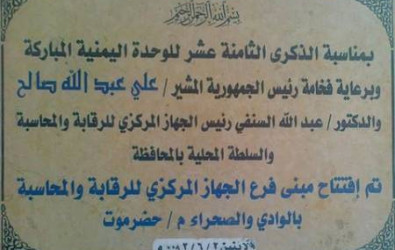 بسم الله الرحمن الرحيم
بمناسبة الذكرى الثامنة عشر للوحدة اليمنية المباركة
وبرعاية فخامة رئيس الجمهورية المشير / علي عبد الله صالح
والدكتور / عبد الله السنفي رئيس الجهاز المركزي للرقابة والمحاسبة
والسلطة المحلية بالمحافظة
تم إفتتاح مبنى فرع الجهاز المركزي للرقابة والمحاسبة
بالوادي والصحراء م / حضرموت